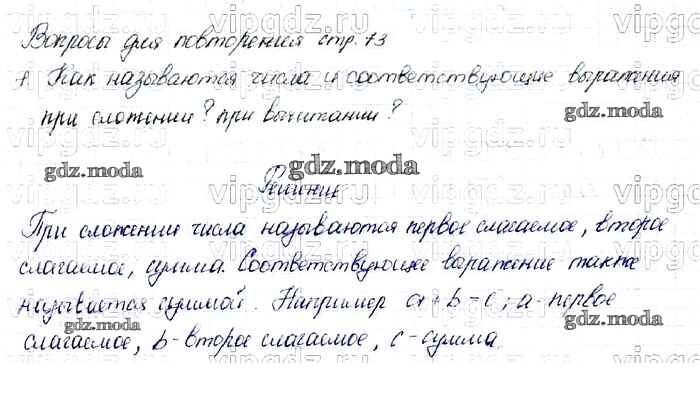 Вопросы для повторения стр. 73
1. Как называются числа и соответствующие выражения
при сложении? при вычитании?
gdz.moda
gdz.moda
gdz.moda
gdz.moda
Решение
При сложении числа называются первое слагаемое, второе
слагаемое, сумма. Соответствующее выражение также
называется суммой. Например a+b=c; a-первое
слагаемое, b-второе слагаемое, c-сумма
gdz.moda
gdz.moda
gdz.moda